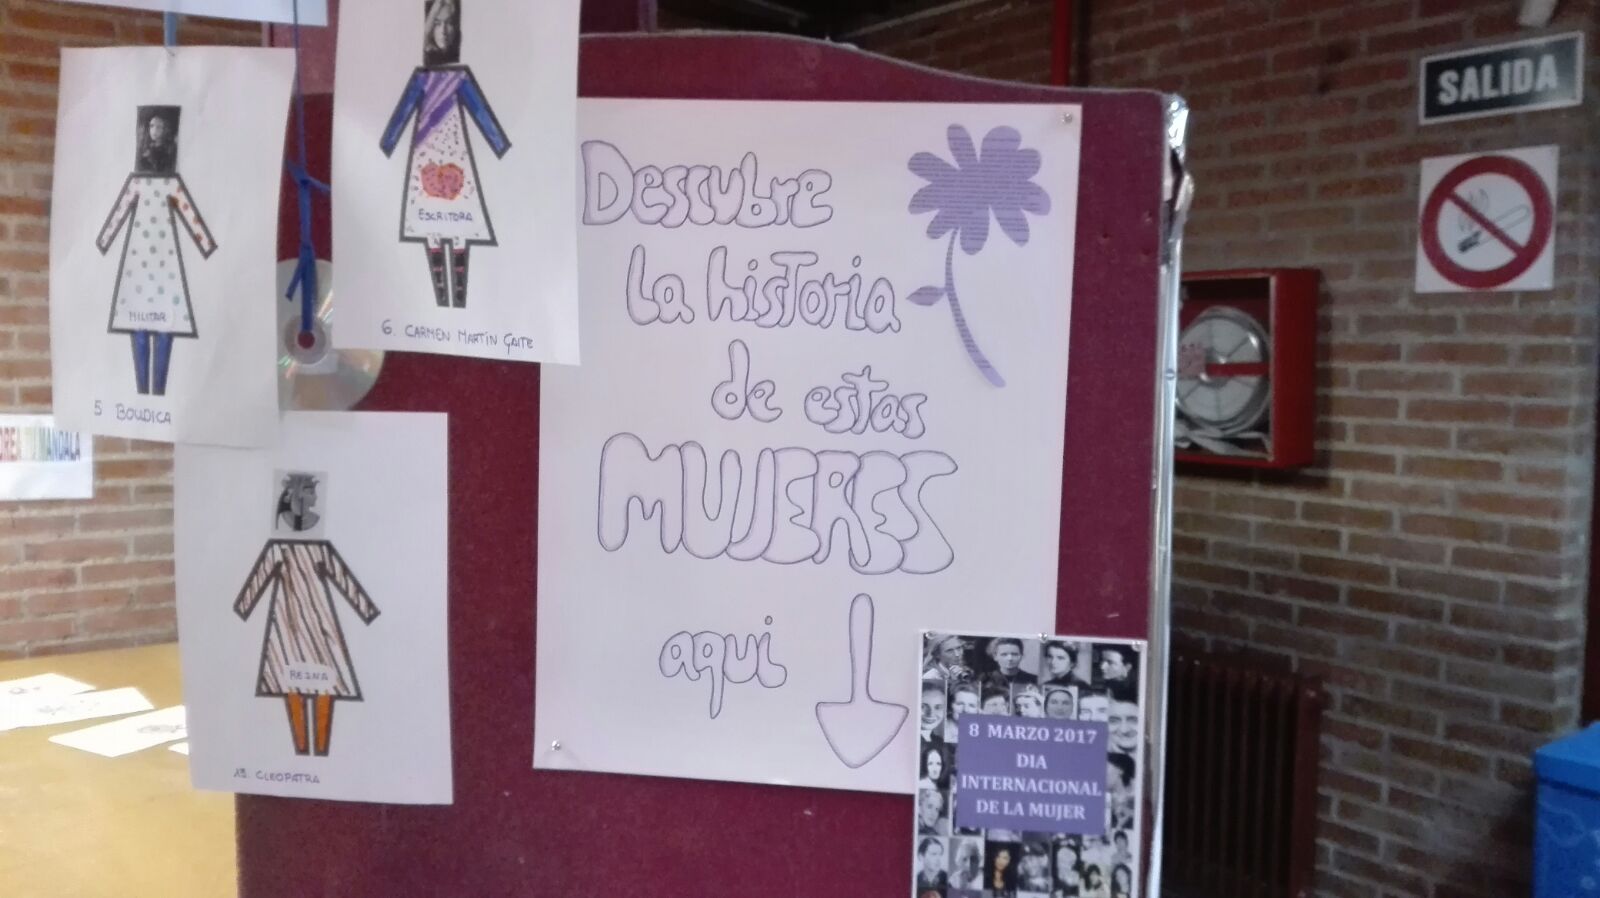 ESCRITORA
6. CARMEN MARTÍN GAITE
MILITAR
5 BOUDICA
REINA
13. CLEOPATRA
DESCUBRE
LA hisToria
de estas
MUJERES
aqui
8 MARZO 2017
DIA
INTERNACIONAL
DE LA MUJER
SALIDA
MANDALA